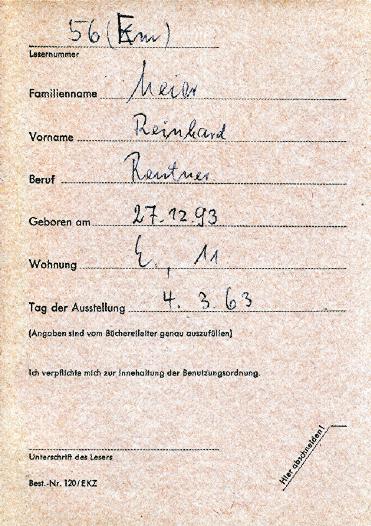 56 (Erw)
Lesernummer
Familienname Meier
Vorname Reinhard
Beruf Rentner
Geboren am 27.12.93
Wohnung E., 11
Tag der Ausstellung 4. 3. 63
(Angaben sind vom Büchereileiter genau auszufüllen)
Ich verpflichte mich zur Innehaltung der Benutzungsordnung.
Hier abschneiden!
Unterschrift des Lesers
Best.-Nr. 120/EKZ